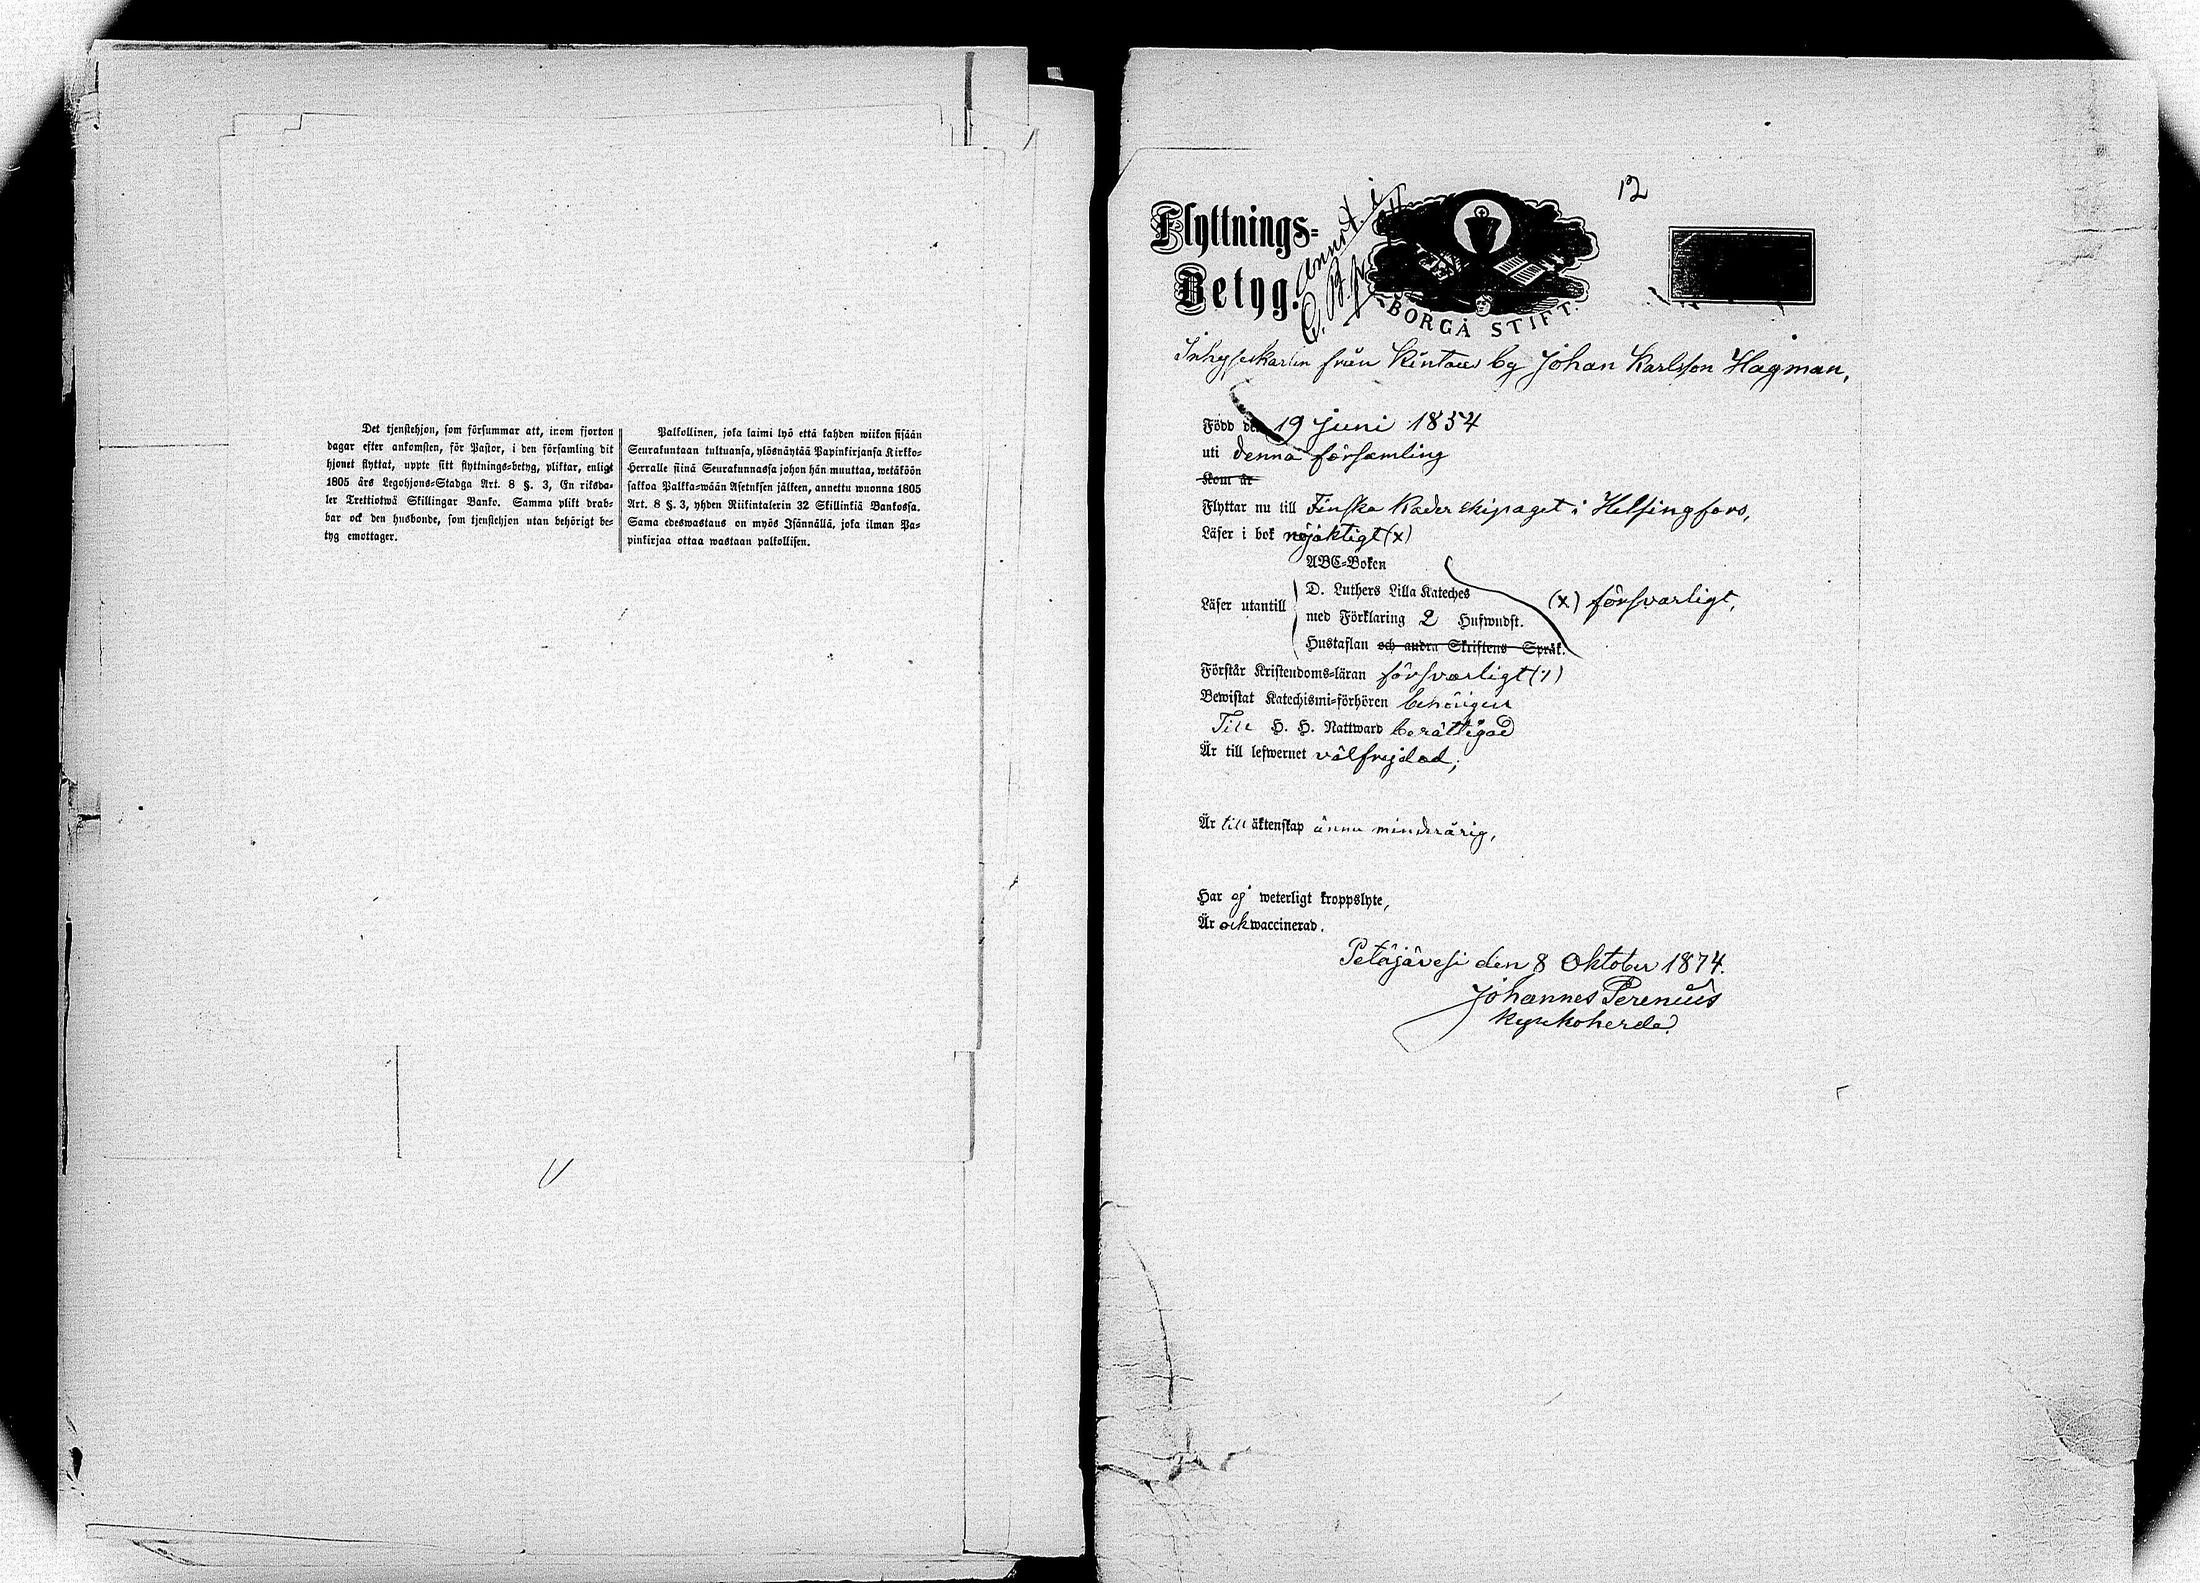 Det tjenstehjon, som försummar att, inom fjorton
dagar efter ankomsten, för Pastor, i den församling dit
hjonet flyttat, uppte sitt flyttnings-betyg, pliktar, enligt
1805 års Legohjons-Stadga Art. 8 §. 3, En riksda-
ler Trettiotwå Skillingar Banko. Samma plikt drab-
bar ock den husbonde, som tjenstehjon utan behörigt be-
tyg emottager.
Palkollinen, joka laimi lyö että kahden wiikon sisään
Seurakuntaan tultuansa, ylösnäytää Papinkirjansa Kirkko-
Herralle siinä Seurakunnassa johon hän muuttaa, wetäköön
sakkoa Palkka-wään Asetuksen jälkeen, annettu wuonna 1805
Art. 8 §. 3, yhden Riikintalerin 32 Skillinkiä Bankossa.
Sama edeswastaus on myös Isännällä, joka ilman Pa-
pinkirjaa ottaa wastaan palkollisen.
12
Flyttnings-
Betyg.
BORGÅ STIFT.
från Kintaus by Johan Karlsson Hagman,
Född den 19 Juni 1854
uti denna församling
Kom år
Flyttar nu till Finska Kader ekipaget i Helsingfors,
Läser i bok nöjaktigt (x)
ABC-Boken
Läser utantill
D. Luthers Lilla Kateches
med Förklaring 2 Hufwudst.
Hustaflan och andra Skriftens Språk.
(x) försvarligt,
Förstår Kristendoms-läran försvarligt (x)
Bewistat Katechismi-förhören behörigen
Till H. H. Nattward berättigad
Är till lefwernet välfrejdad,
Är till äktenskap ännu minderårig,
Har ej weterligt kroppslyte,
Är ock waccinerad.
Petäjävesi den 8 Oktober 1874.
Johannes Perenius
Kyrkoherde